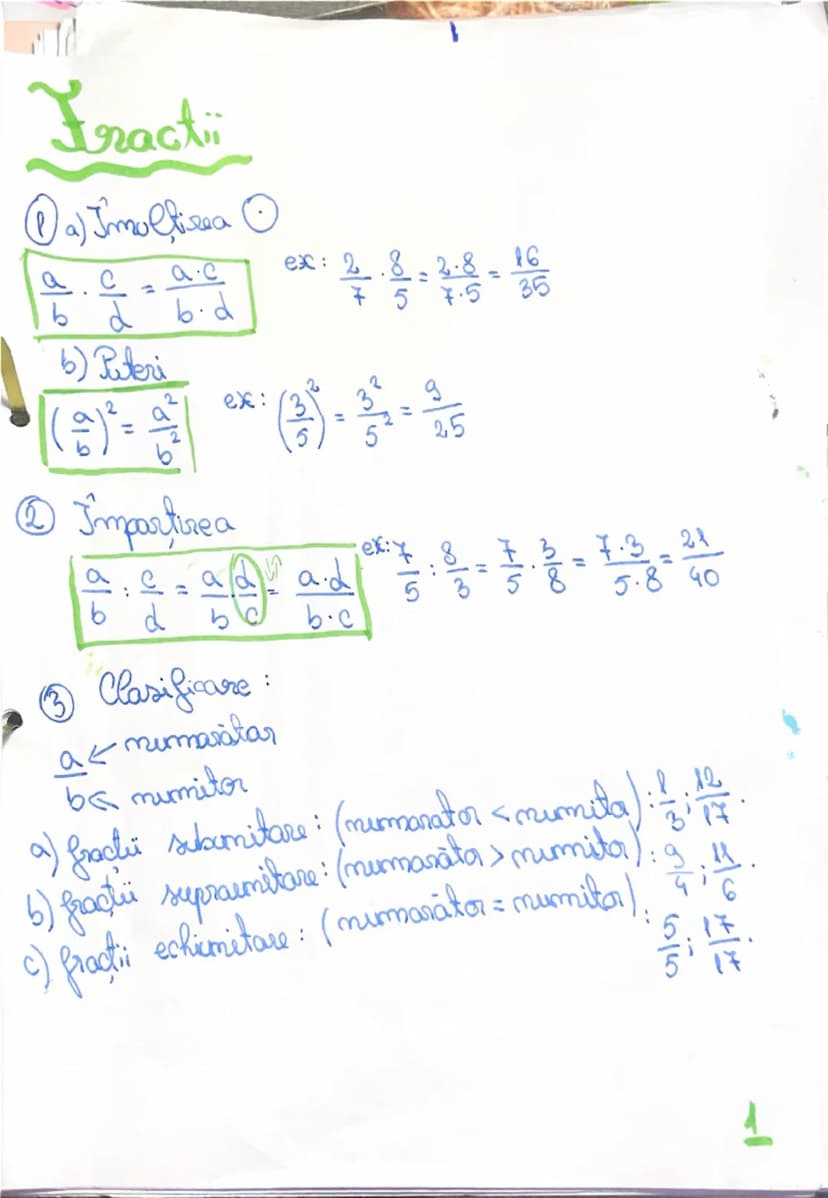 Fractii
① a) Înmulțirea ⊙
a/b · c/d = a·c/b·d ex: 2/7 · 8/5 = 2·8/7·5 = 16/35
b) Puteri
(a/b)² = a²/b² ex: (3/5)² = 3²/5² = 9/25
② Împarțirea
a/b : c/d = a/b · d/c = a·d/b·c ex: 7/5 : 8/3 = 7/5 · 3/8 = 7·3/5·8 = 21/40
③ Clasificare:
a ← numărătar
b ← numitor
a) fracții subunitare: (numarator < numitor): 1/3; 12/17.
b) fracții supraunitare: (numarător > numitor): 9/4; 11/6.
c) fracții echiunitare: (numarător = numitor): 5/5; 17/17.
1